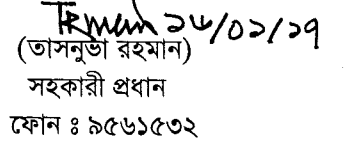 ১৮/০১/১৭
(তাসনুভা রহমান)
সহকারী প্রধান
ফোন ঃ ৯৫৬১৫৩২